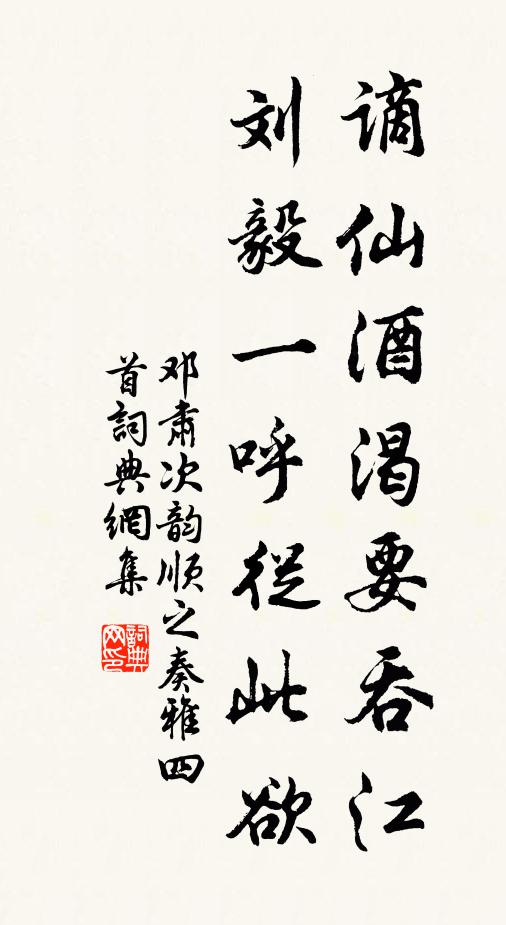 谪仙酒渴要吞江
刘毅一呼従此欲
邓肃次韵顺之奏雅四
首詞典網集
詞典
网印